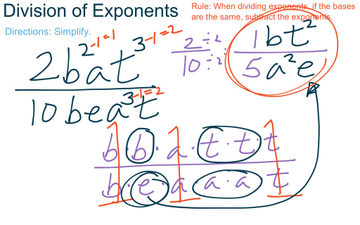 Division of Exponents
Rule: When dividing exponents, if the bases are the same, subtract the exponents.
Directions: Simplify.
2b²⁻¹⁼¹at³⁻¹⁼²
10bea³⁻¹⁼²t
2 ÷2
10 ÷2
:
1bt²
5a²e
b·b·a·t·t·t
b·e·a·a·a·t